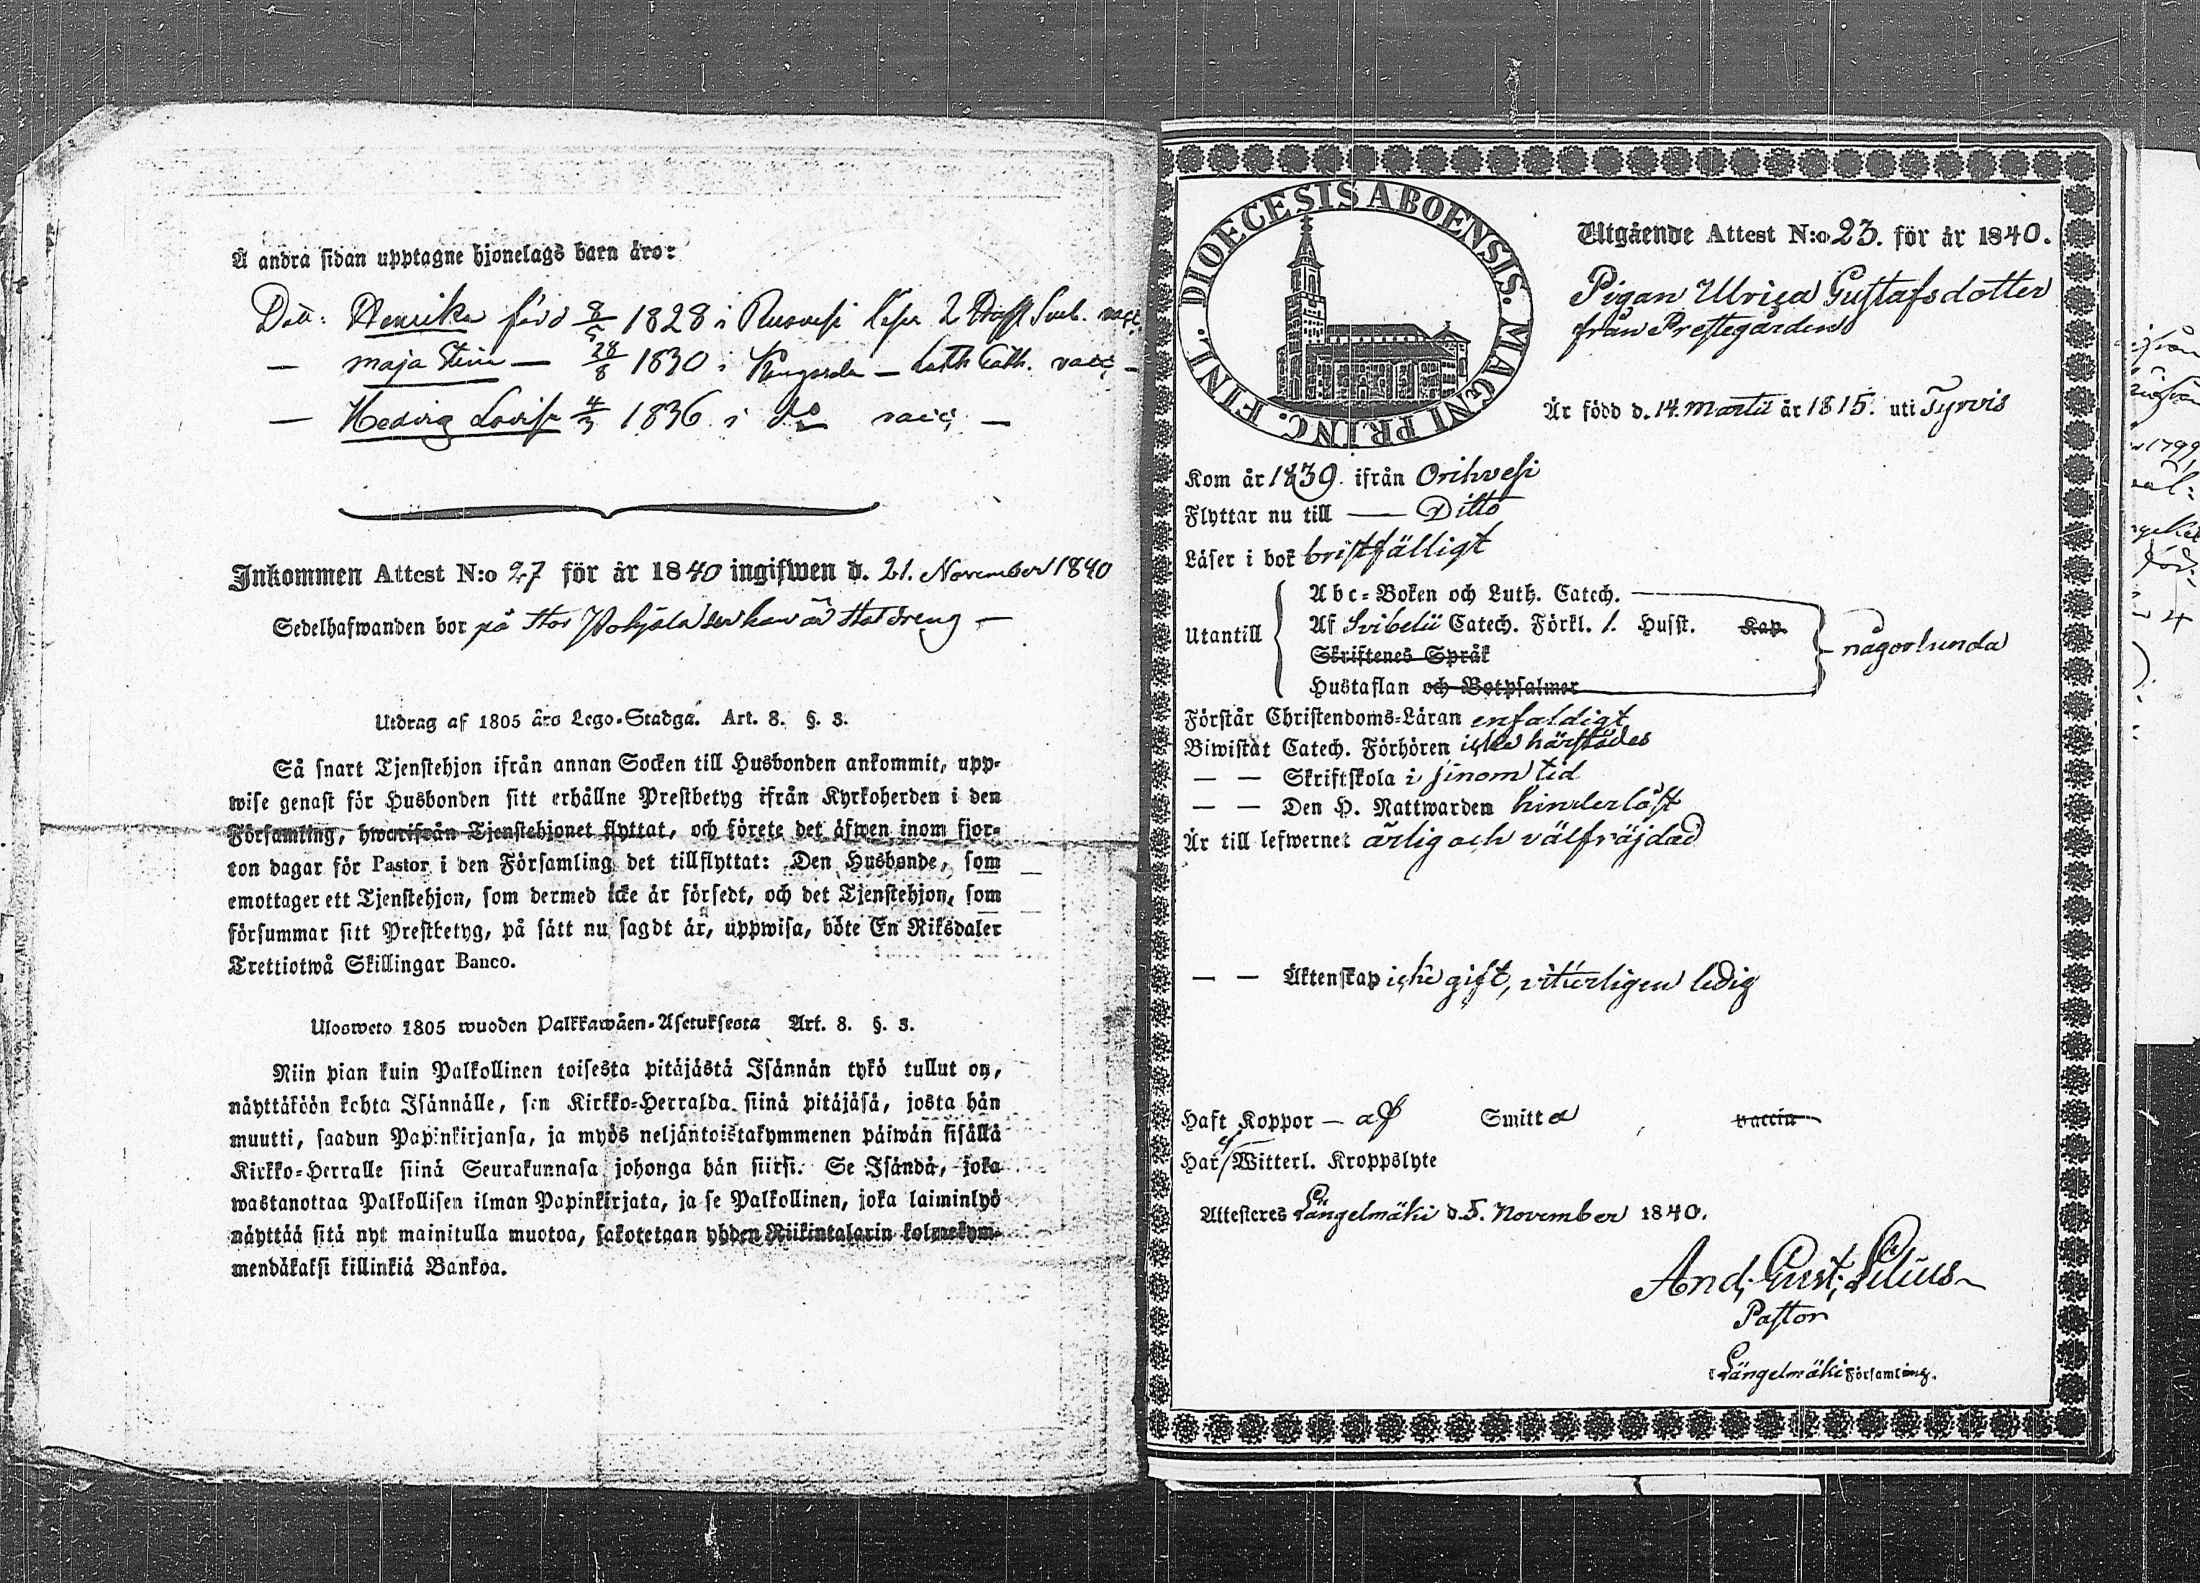 Å andra sidan upptagne hjonelags barn äro:
Dott: Henrika född 8/5 1828 i Ruovesi läser 2 Sveb. vacc.
— Maja Stina — 28/8 1830 i — Luth Cath. vacc —
— Hedvig Lovisa 4/3 1836 i do vacc —
Inkommen Attest N:o 27 för år 1840 ingifwen d. 21. November 1840
Sedelhafwanden bor på Stor Pohjala är
Utdrag af 1805 års Lego-Stadga. Art. 8. §. 3.
Så snart Tjenstehjon ifrån annan Socken till Husbonden ankommit, upp-
wise genast för Husbonden sitt erhållne Prestbetyg ifrån Kyrkoherden i den
Församling, hwarifrån Tjenstehjonet flyttat, och förete det äfwen inom fjor-
ton dagar för Pastor i den Församling det tillflyttat: Den Husbonde, som
emottager ett Tjenstehjon, som dermed icke är försedt, och det Tjenstehjon, som
försummar sitt Prestbetyg, på sätt nu sagdt är, uppwisa, böte En Riksdaler
Trettiotwå Skillingar Banco.
Ulosweto 1805 wuoden Palkkawäen-Asetuksesta Art. 8. §. 3.
Niin pian kuin Palkollinen toisesta pitäjästä Isännän tykö tullut on,
näyttäköön kohta Isännälle, sen Kirkko-Herralda siinä pitäjäsä, josta hän
muutti, saadun Papinkirjansa, ja myös neljäntoistakymmenen päiwän sisällä
Kirkko-Herralle siinä Seurakunnasa johonga hän siirsi. Se Isändä, joka
wastanottaa Palkollisen ilman Papinkirjata, ja se Palkollinen, joka laiminlyö
näyttää sitä nyt mainitulla muotoa, sakotetaan yhden Riikintalarin kolmekym-
mendäkaksi killinkiä Bankoa.
DIOECESIS ABOENSIS. MAGNI PRINC. FINL.
Utgående Attest N:o 23. för år 1840.
Pigan Ulrica Gustafsdotter
från Prestegården
Är född d. 14. Martii år 1815. uti Tyrvis
Kom år 1839. ifrån Orihvesi
Flyttar nu till — Ditto
Läser i bok bristfälligt
Utantill
Abc-Boken och Luth. Catech.
Af Svibelii Catech. Förkl. 1. Husst. Kap.
Skriftenes Språk
Hustaflan och Botpsalmer
någorlunda
Förstår Christendoms-Läran enfaldigt
Biwistat Catech. Förhören icke härstädes
— — Skriftskola i sinom tid
— — Den H. Nattwarden hinderlöst
Är till lefwernet ärlig och välfräjdad
— — Äktenskap icke gift, vitterligen ledig
Haft Koppor — af Smitta vaccin
Har ej Witterl. Kroppslyte
Attesteres Längelmäki d. 5. November 1840.
And. Gust. Lilius
Pastor
i Längelmäki Församling.
1799